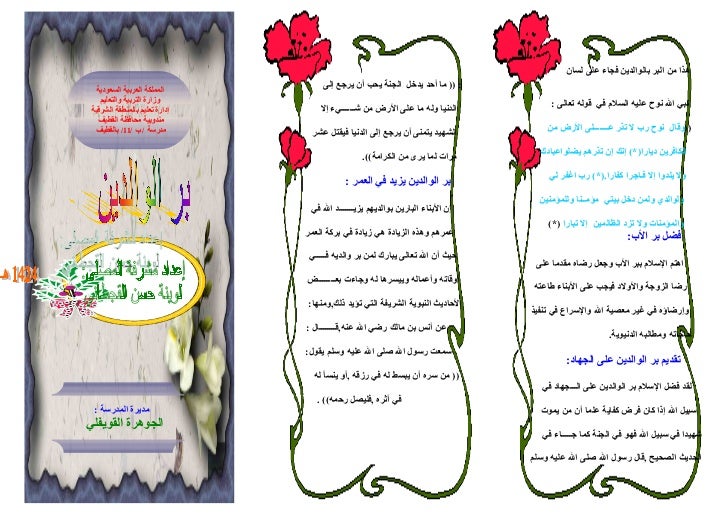 هذا من البر بالوالدين فجاء على لسان
نبي الله نوح عليه السلام في قوله تعالى :
(وقال نوح رب لا تذر عـــلى الأرض من
الكافرين ديارا(*) إنك إن تذرهم يضلوا عبادك
ولا يلدوا إلا فاجرا كفارا.(*) رب اغفر لي
ولوالدي ولمن دخل بيتي مؤمنا وللمؤمنين
والمؤمنات ولا تزد الظالمين إلا تبارا (*)
فضل بر الأب:
اهتم الإسلام ببر الأب وجعل رضاه مقدما على
رضا الزوجة والأولاد فيجب على الأبناء طاعته
وإرضاؤه في غير معصية الله والإسراع في تنفيذ
حاجاته ومطالبه الدنيوية.
تقديم بر الوالدين على الجهاد:
لقد فضل الإسلام بر الوالدين على الـــجهاد في
سبيل الله إذا كان فرض كفاية علما أن من يموت
شهيدا في سبيل الله فهو في الجنة كما جـــاء في
الحديث الصحيح ,قال رسول الله صلى الله عليه وسلم
(( ما أحد يدخل الجنة يحب أن يرجع إلى
الدنيا وله ما على الأرض من شـــيء إلا
الشهيد يتمنى أن يرجع إلى الدنيا فيقتل عشر
مرات لما يرى من الكرامة)).
بر الوالدين يزيد في العمر :
إن الأبناء البارين بوالديهم يزيـــد الله في
عمرهم وهذه الزيادة هي زيادة في بركة العمر
حيث أن الله تعالى يبارك لمن بر والديه فـــي
أوقاته وأعماله وييسرها له وجاءت بعـــض
الأحاديث النبوية الشريفة التي تؤيد ذلك,ومنها:
عن أنس بن مالك رضي الله عنه,قـــال :
سمعت رسول الله صلى الله عليه وسلم يقول:
(( من سره أن يبسط له في رزقه ,أو ينسأ له
في أثره ,فليصل رحمه)) .
المملكة العربية السعودية
وزارة التربية والتعليم
إدارة تعليم بالمنطقة الشرقية
مندوبية محافظة القطيف
مدرسة /ب /11/ بالقطيف
بر الوالدين
إعداد مشرفة المصلى
لوينة حسن
1424هـ
مديرة المدرسة :
الجوهرة القويفلي